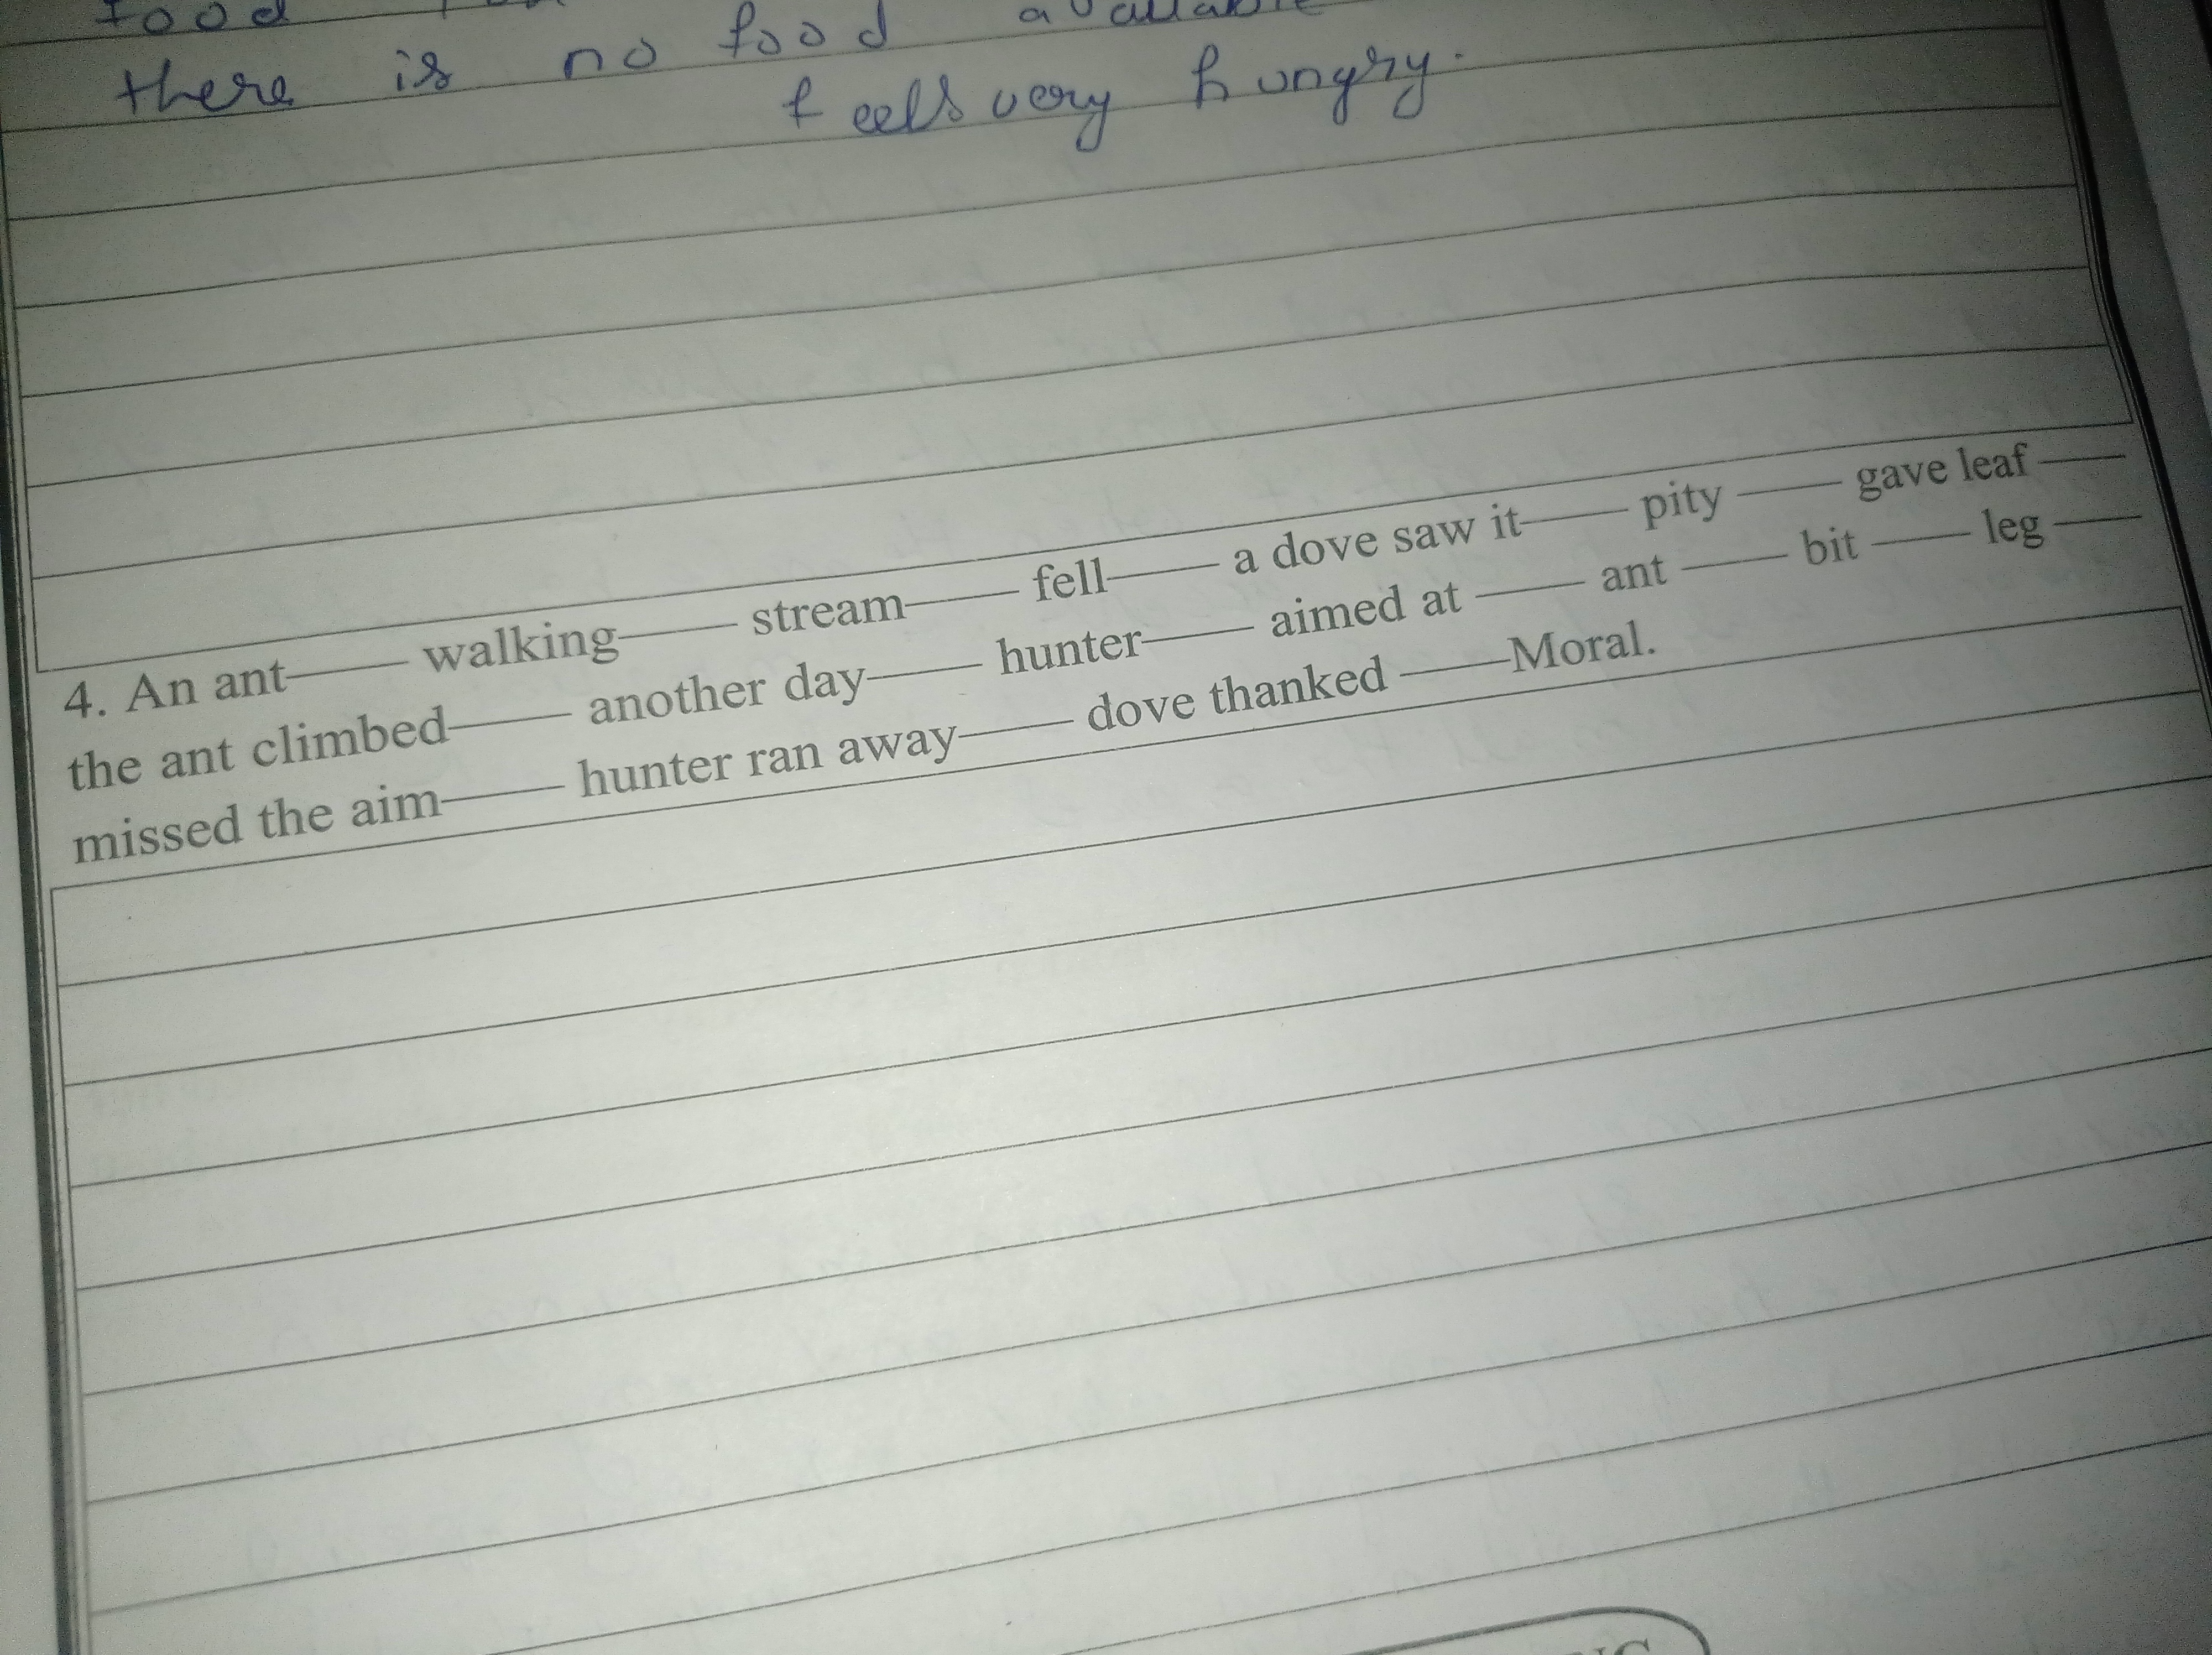 food
there is no food available
feels very hungry.
4. An ant—— walking—— stream—— fell—— a dove saw it—— pity —— gave leaf ——
the ant climbed—— another day—— hunter—— aimed at —— ant —— bit —— leg ——
missed the aim—— hunter ran away—— dove thanked ——Moral.